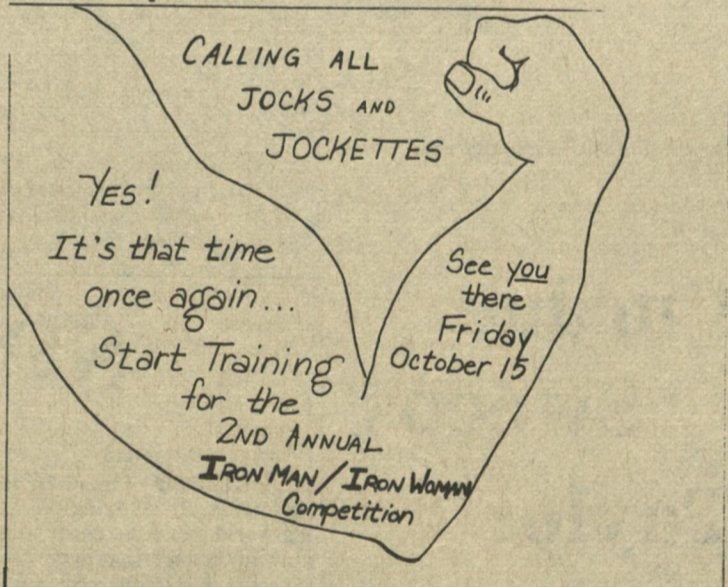 CALLING ALL
JOCKS AND
JOCKETTES
YES!
It's that time
once again...
Start Training
for the
2ND ANNUAL
IRON MAN/IRON WOMAN
Competition
See you
there
Friday
October 15